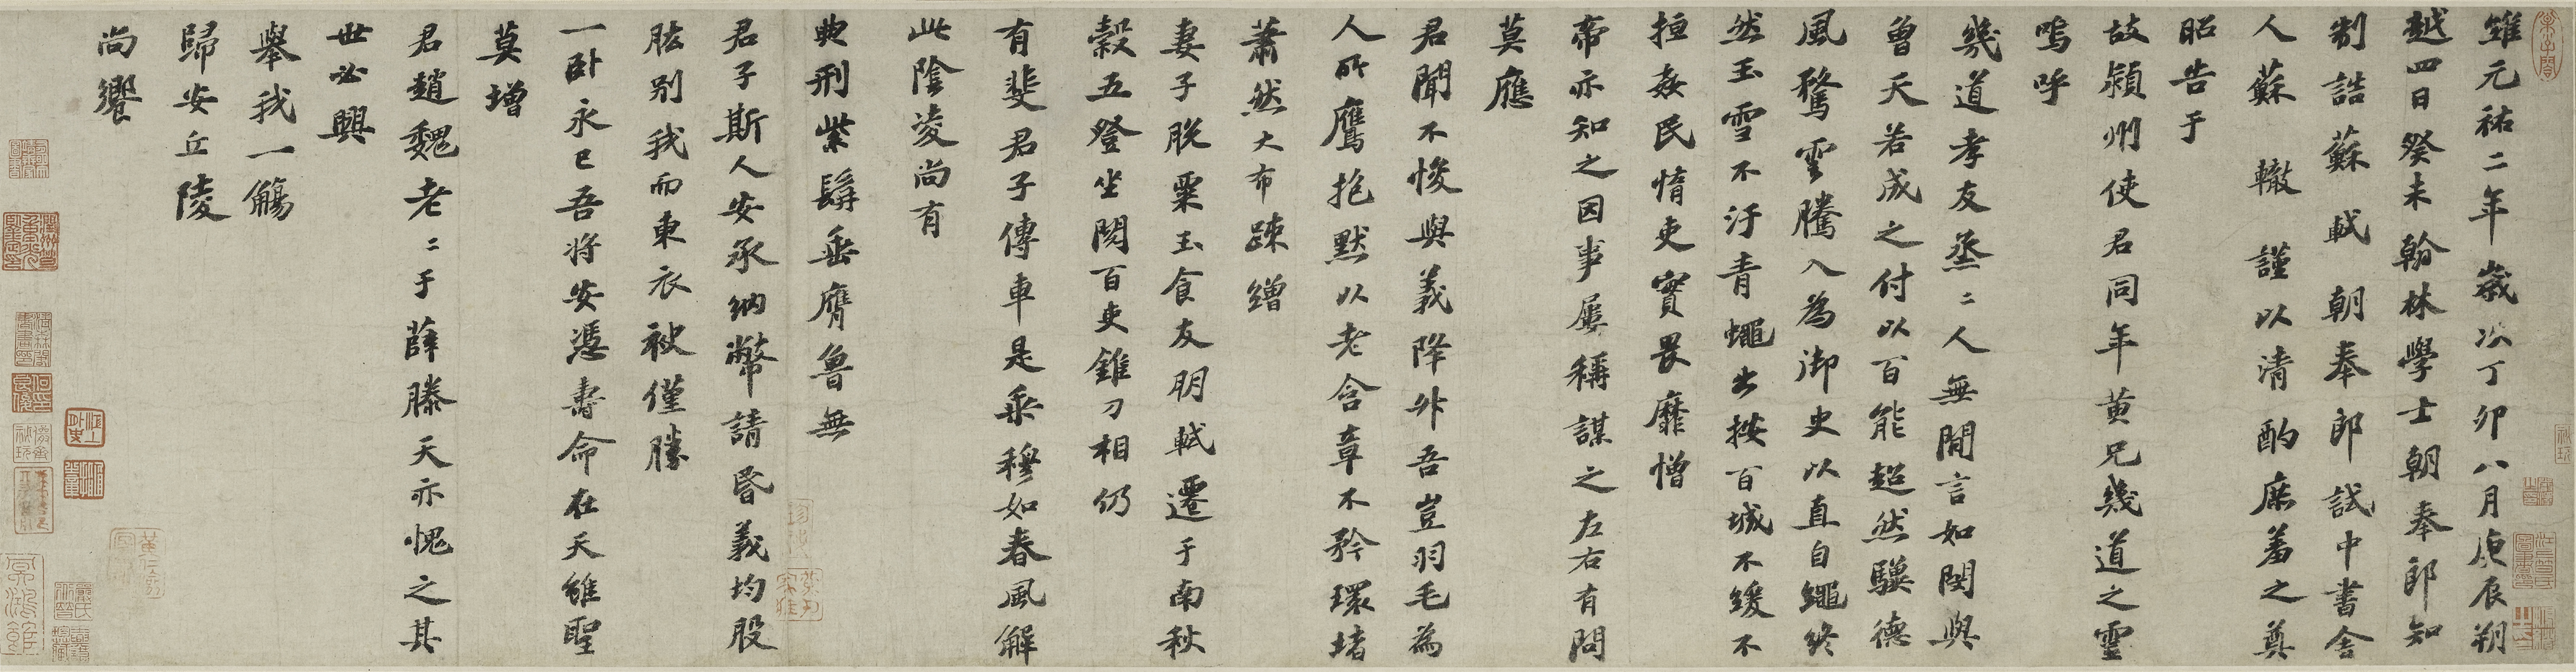 維元祐二年歲次丁卯八月庚辰朔
越四日癸未翰林學士朝奉郎知
制誥蘇軾朝奉郎試中書舍
人蘇轍謹以清酌庶羞之奠
昭告于
故潁州使君同年黃兄幾道之靈
嗚呼
幾道孝友烝二人無間言如閔與
曾天若成之付以百能超然驥德
風騖雲騰入為御史以直自繩終
然玉雪不汙青蠅出按百城不緩不
搄姦民惰吏實畏靡憎
帝亦知之因事屢稱謀之左右有問
莫應
君聞不悛與義降升吾豈羽毛為
人所鷹抱默以老含章不矜環堵
蕭然大布疎繒
妻子脫粟玉食友朋軾遷于南秋
穀五登坐閱百吏錐刀相仍
有斐君子傳車是乘穆如春風解
此陰凌尚有
典刑紫髯垂膺魯無
君子斯人安承納幣請昏義均股
肱別我而東衣袂僅勝
一臥永已吾將安憑壽命在天雖聖
莫增
君趙魏老二于薛滕天亦愧之其
世必興
舉我一觴
歸安丘陵
尚饗